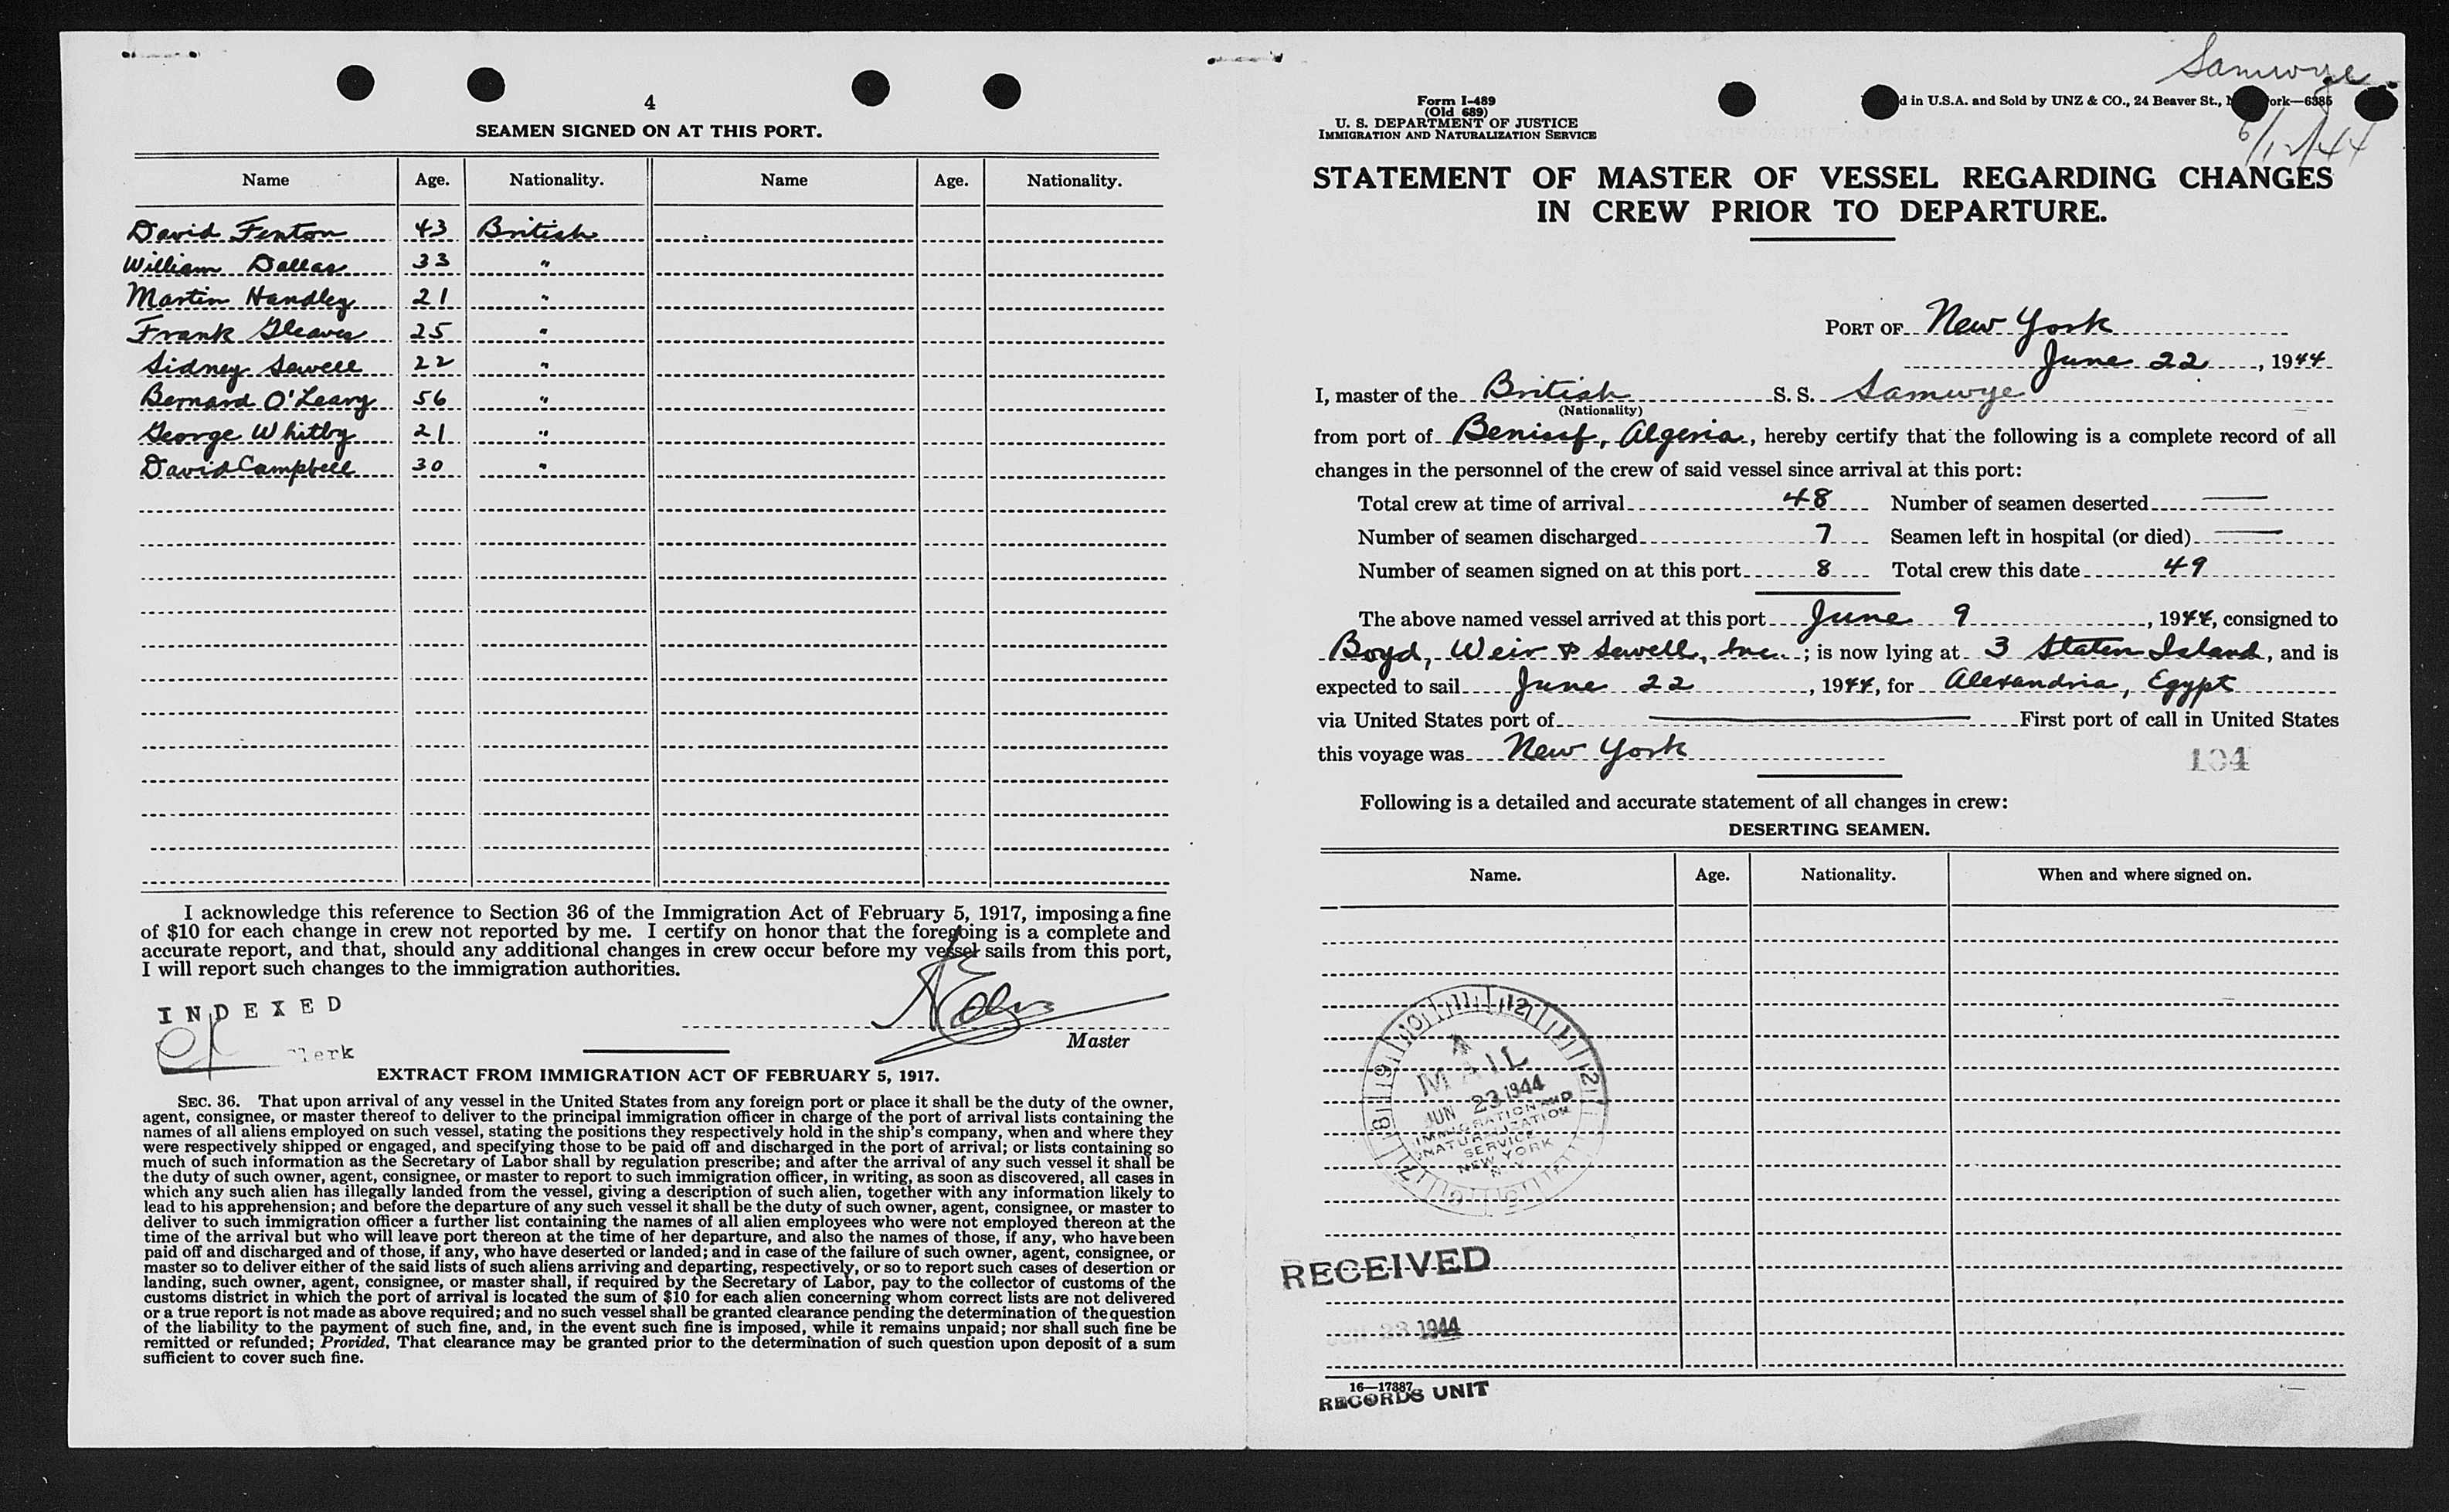 4
SEAMEN SIGNED ON AT THIS PORT.
Name Age. Nationality. Name Age. Nationality.
David Fenton 43 British
William Dallas 33 "
Martin Handley 21 "
Frank Gleaves 25 "
Sidney Sewell 22 "
Bernard O'Leary 56 "
George Whitby 21 "
David Campbell 30 "
I acknowledge this reference to Section 36 of the Immigration Act of February 5, 1917, imposing a fine
of $10 for each change in crew not reported by me. I certify on honor that the foregoing is a complete and
accurate report, and that, should any additional changes in crew occur before my vessel sails from this port,
I will report such changes to the immigration authorities.
INDEXED
Clerk
Master
EXTRACT FROM IMMIGRATION ACT OF FEBRUARY 5, 1917.
SEC. 36. That upon arrival of any vessel in the United States from any foreign port or place it shall be the duty of the owner,
agent, consignee, or master thereof to deliver to the principal immigration officer in charge of the port of arrival lists containing the
names of all aliens employed on such vessel, stating the positions they respectively hold in the ship's company, when and where they
were respectively shipped or engaged, and specifying those to be paid off and discharged in the port of arrival; or lists containing so
much of such information as the Secretary of Labor shall by regulation prescribe; and after the arrival of any such vessel it shall be
the duty of such owner, agent, consignee, or master to report to such immigration officer, in writing, as soon as discovered, all cases in
which any such alien has illegally landed from the vessel, giving a description of such alien, together with any information likely to
lead to his apprehension; and before the departure of any such vessel it shall be the duty of such owner, agent, consignee, or master to
deliver to such immigration officer a further list containing the names of all alien employees who were not employed thereon at the
time of the arrival but who will leave port thereon at the time of her departure, and also the names of those, if any, who have been
paid off and discharged and of those, if any, who have deserted or landed; and in case of the failure of such owner, agent, consignee, or
master so to deliver either of the said lists of such aliens arriving and departing, respectively, or so to report such cases of desertion or
landing, such owner, agent, consignee, or master shall, if required by the Secretary of Labor, pay to the collector of customs of the
customs district in which the port of arrival is located the sum of $10 for each alien concerning whom correct lists are not delivered
or a true report is not made as above required; and no such vessel shall be granted clearance pending the determination of the question
of the liability to the payment of such fine, and, in the event such fine is imposed, while it remains unpaid; nor shall such fine be
remitted or refunded; Provided, That clearance may be granted prior to the determination of such question upon deposit of a sum
sufficient to cover such fine.
Samwye
6/12/44
Form I-489
(Old 689)
U. S. DEPARTMENT OF JUSTICE
IMMIGRATION AND NATURALIZATION SERVICE
d in U.S.A. and Sold by UNZ & CO., 24 Beaver St., N ork—6385
STATEMENT OF MASTER OF VESSEL REGARDING CHANGES
IN CREW PRIOR TO DEPARTURE.
PORT OF New York
June 22, 1944
I, master of the British S. S. Samwye
(Nationality)
from port of Benisaf, Algeria, hereby certify that the following is a complete record of all
changes in the personnel of the crew of said vessel since arrival at this port:
Total crew at time of arrival 48 Number of seamen deserted —
Number of seamen discharged 7 Seamen left in hospital (or died) —
Number of seamen signed on at this port 8 Total crew this date 49
The above named vessel arrived at this port June 9, 1944, consigned to
Boyd, Weir & Sewell, Inc.; is now lying at 3 Staten Island, and is
expected to sail June 22, 1944, for Alexandria, Egypt
via United States port of — First port of call in United States
this voyage was New York
104
Following is a detailed and accurate statement of all changes in crew:
DESERTING SEAMEN.
Name. Age. Nationality. When and where signed on.
MAIL
JUN 23 1944
IMMIGRATION AND
NATURALIZATION
SERVICE
NEW YORK
N.Y.
RECEIVED
JUN 23 1944
16—17887
RECORDS UNIT